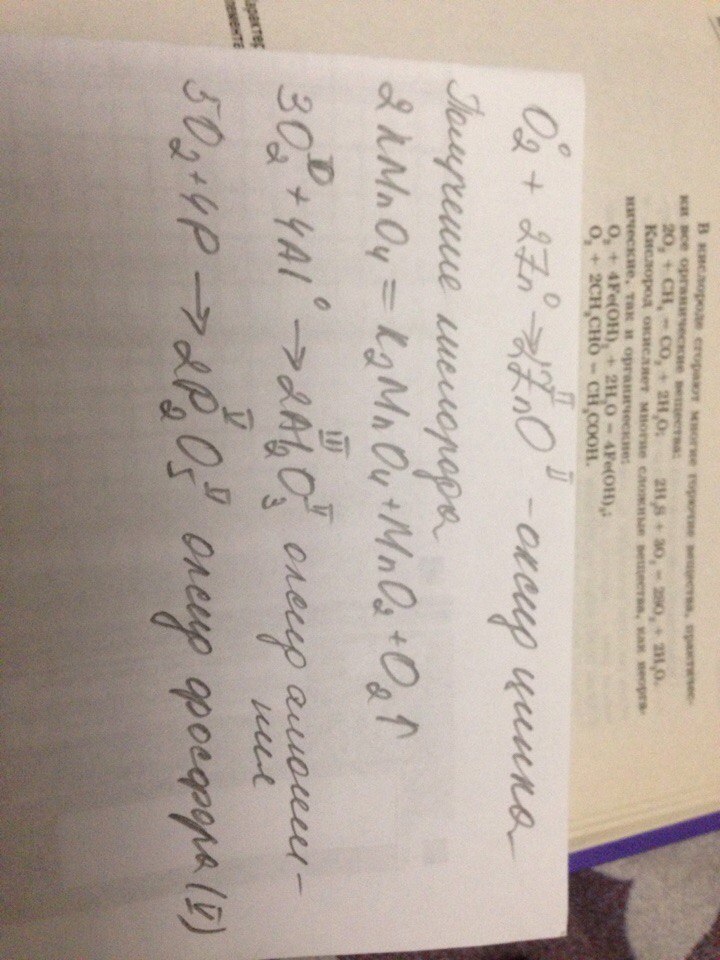 В кислороде сгорают многие горючие вещества, практичес-
ки все органические вещества:
2O₂ + CH₄ = CO₂ + 2H₂O; 2H₂S + 3O₂ = 2SO₂ + 2H₂O.
Кислород окисляет многие сложные вещества, как неорга-
нические, так и органические:
O₂ + 4Fe(OH)₂ + 2H₂O = 4Fe(OH)₃;
O₂ + 2CH₃CHO = CH₃COOH.
O₂⁰ + 2Zn⁰ → 2Zn^II O^II - оксид цинка
Получение кислорода
2KMnO₄ = K₂MnO₄ + MnO₂ + O₂↑
3O₂⁰ + 4Al⁰ → 2Al₂^III O₃^II оксид алюмини-
ния
5O₂ + 4P → 2P₂^V O₅^II оксид фосфора (V)